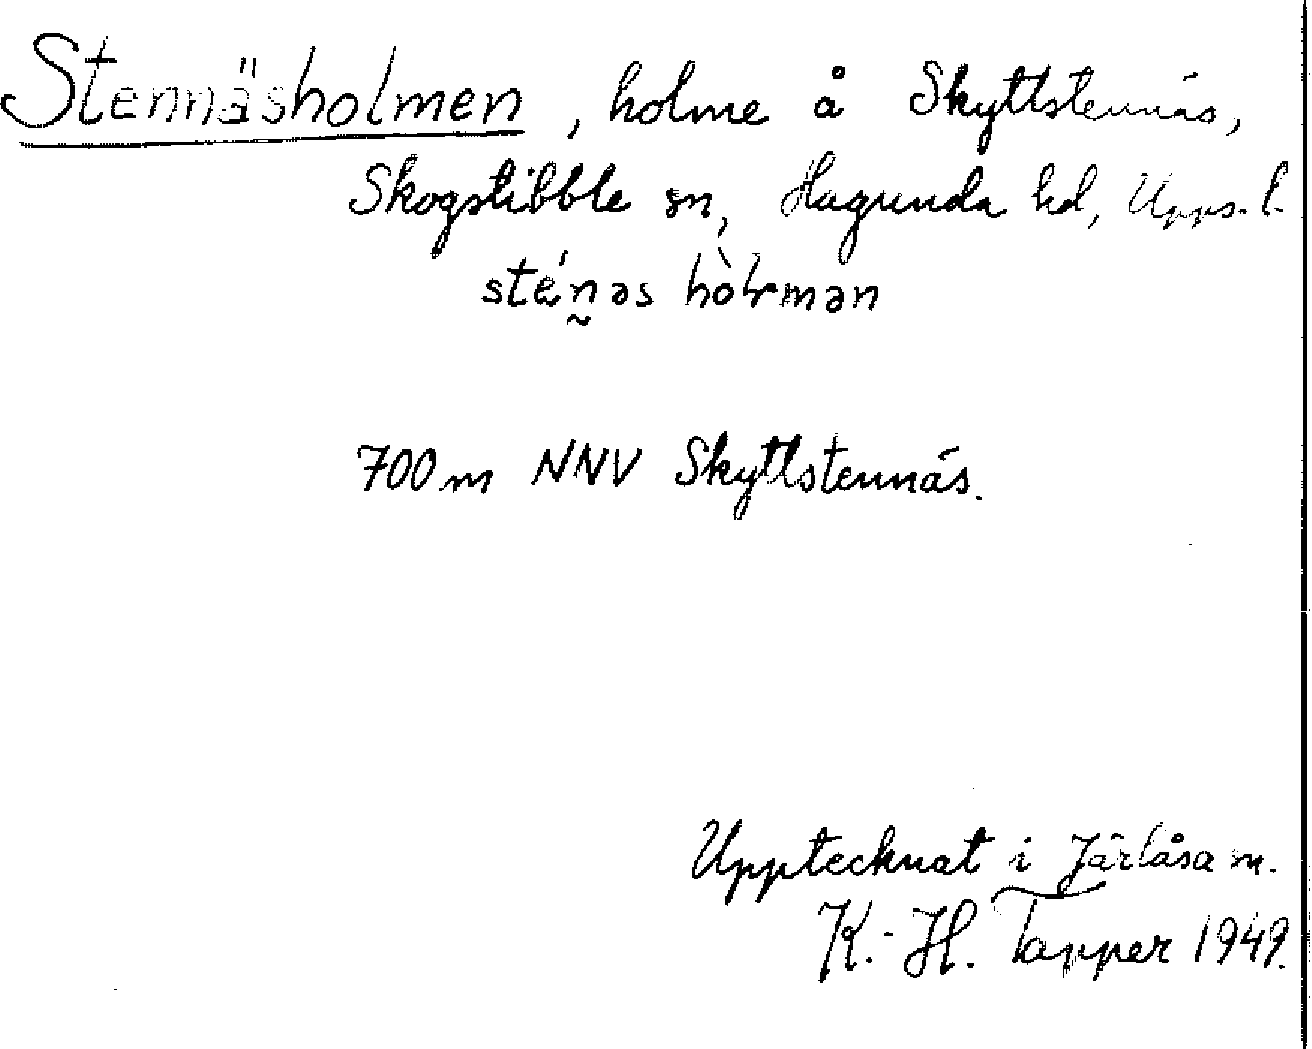 Stennäsholmen, holme å Skyttstennäs,
Skogstibble sn, Hagunda hd, Upps. l.
sté́n̰əs hòɬmən
700 m NNV Skyttstennäs.
Upptecknat i Järlåsa sn.
K.-H. Tapper 1949.